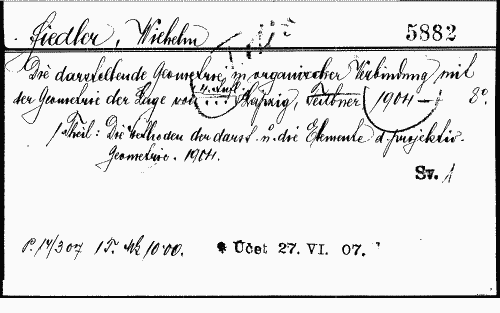 Fiedler, Wilhelm 5882
Die darstellende Geometrie in organischer Verbindung mit
der Geometrie der Lage von ... 4. Aufl. Leipzig, Teubner 1904 – 8°.
1 Theil: Die Methoden der darst. u. die Elemente d. projektiv.
Geometrie. 1904.
Sv. 1
P. 14/307 1 T. Mk 10·00. Účet 27. VI. 07.